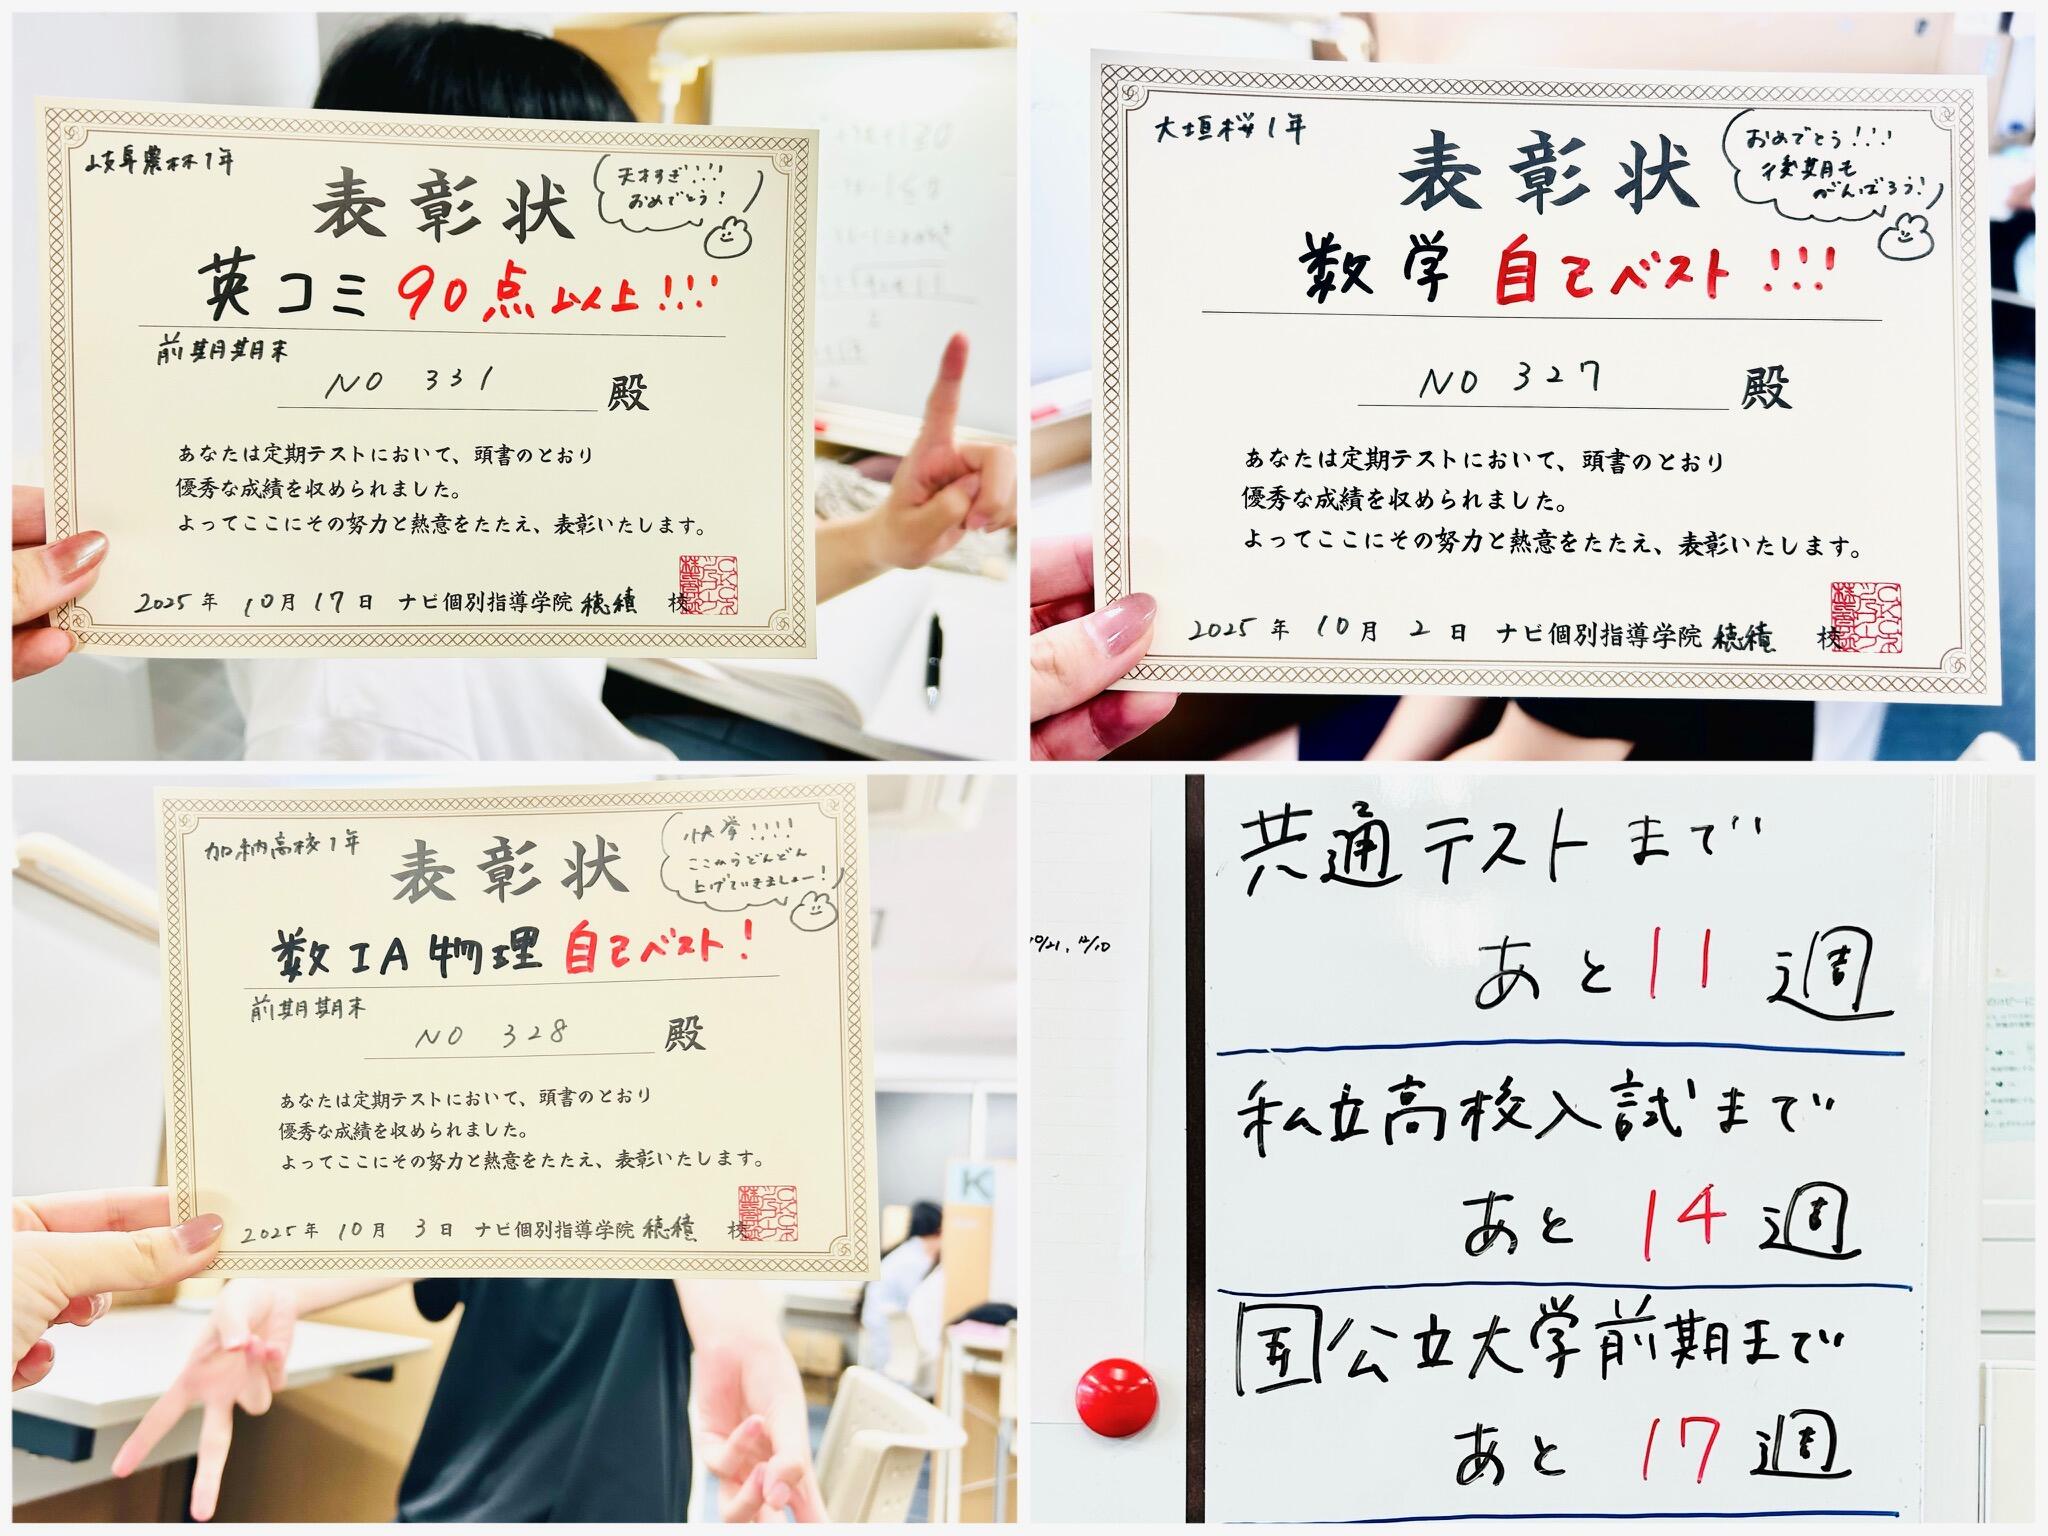 岐阜農林1年
表彰状
天才すぎ!!!
おめでとう!
英コミ 90点以上!!!
前期期末
NO 331 殿
あなたは定期テストにおいて、頭書のとおり
優秀な成績を収められました。
よってここにその努力と熱意をたたえ、表彰いたします。
2025年 10月 17日 ナビ個別指導学院 穂積 校
大垣桜1年
表彰状
おめでとう!!!
後期も
がんばろう!
数学 自己ベスト!!!
NO 327 殿
あなたは定期テストにおいて、頭書のとおり
優秀な成績を収められました。
よってここにその努力と熱意をたたえ、表彰いたします。
2025年 10月 2日 ナビ個別指導学院 穂積 校
加納高校1年
表彰状
快挙!!!!
ここからどんどん
上げていきましょー!
数IA 物理 自己ベスト!
前期期末
NO 328 殿
あなたは定期テストにおいて、頭書のとおり
優秀な成績を収められました。
よってここにその努力と熱意をたたえ、表彰いたします。
2025年 10月 3日 ナビ個別指導学院 穂積 校
K
共通テストまで
あと 11 週
10/21, 12/10
私立高校入試まで
あと 14 週
国公立大学前期まで
あと 17 週